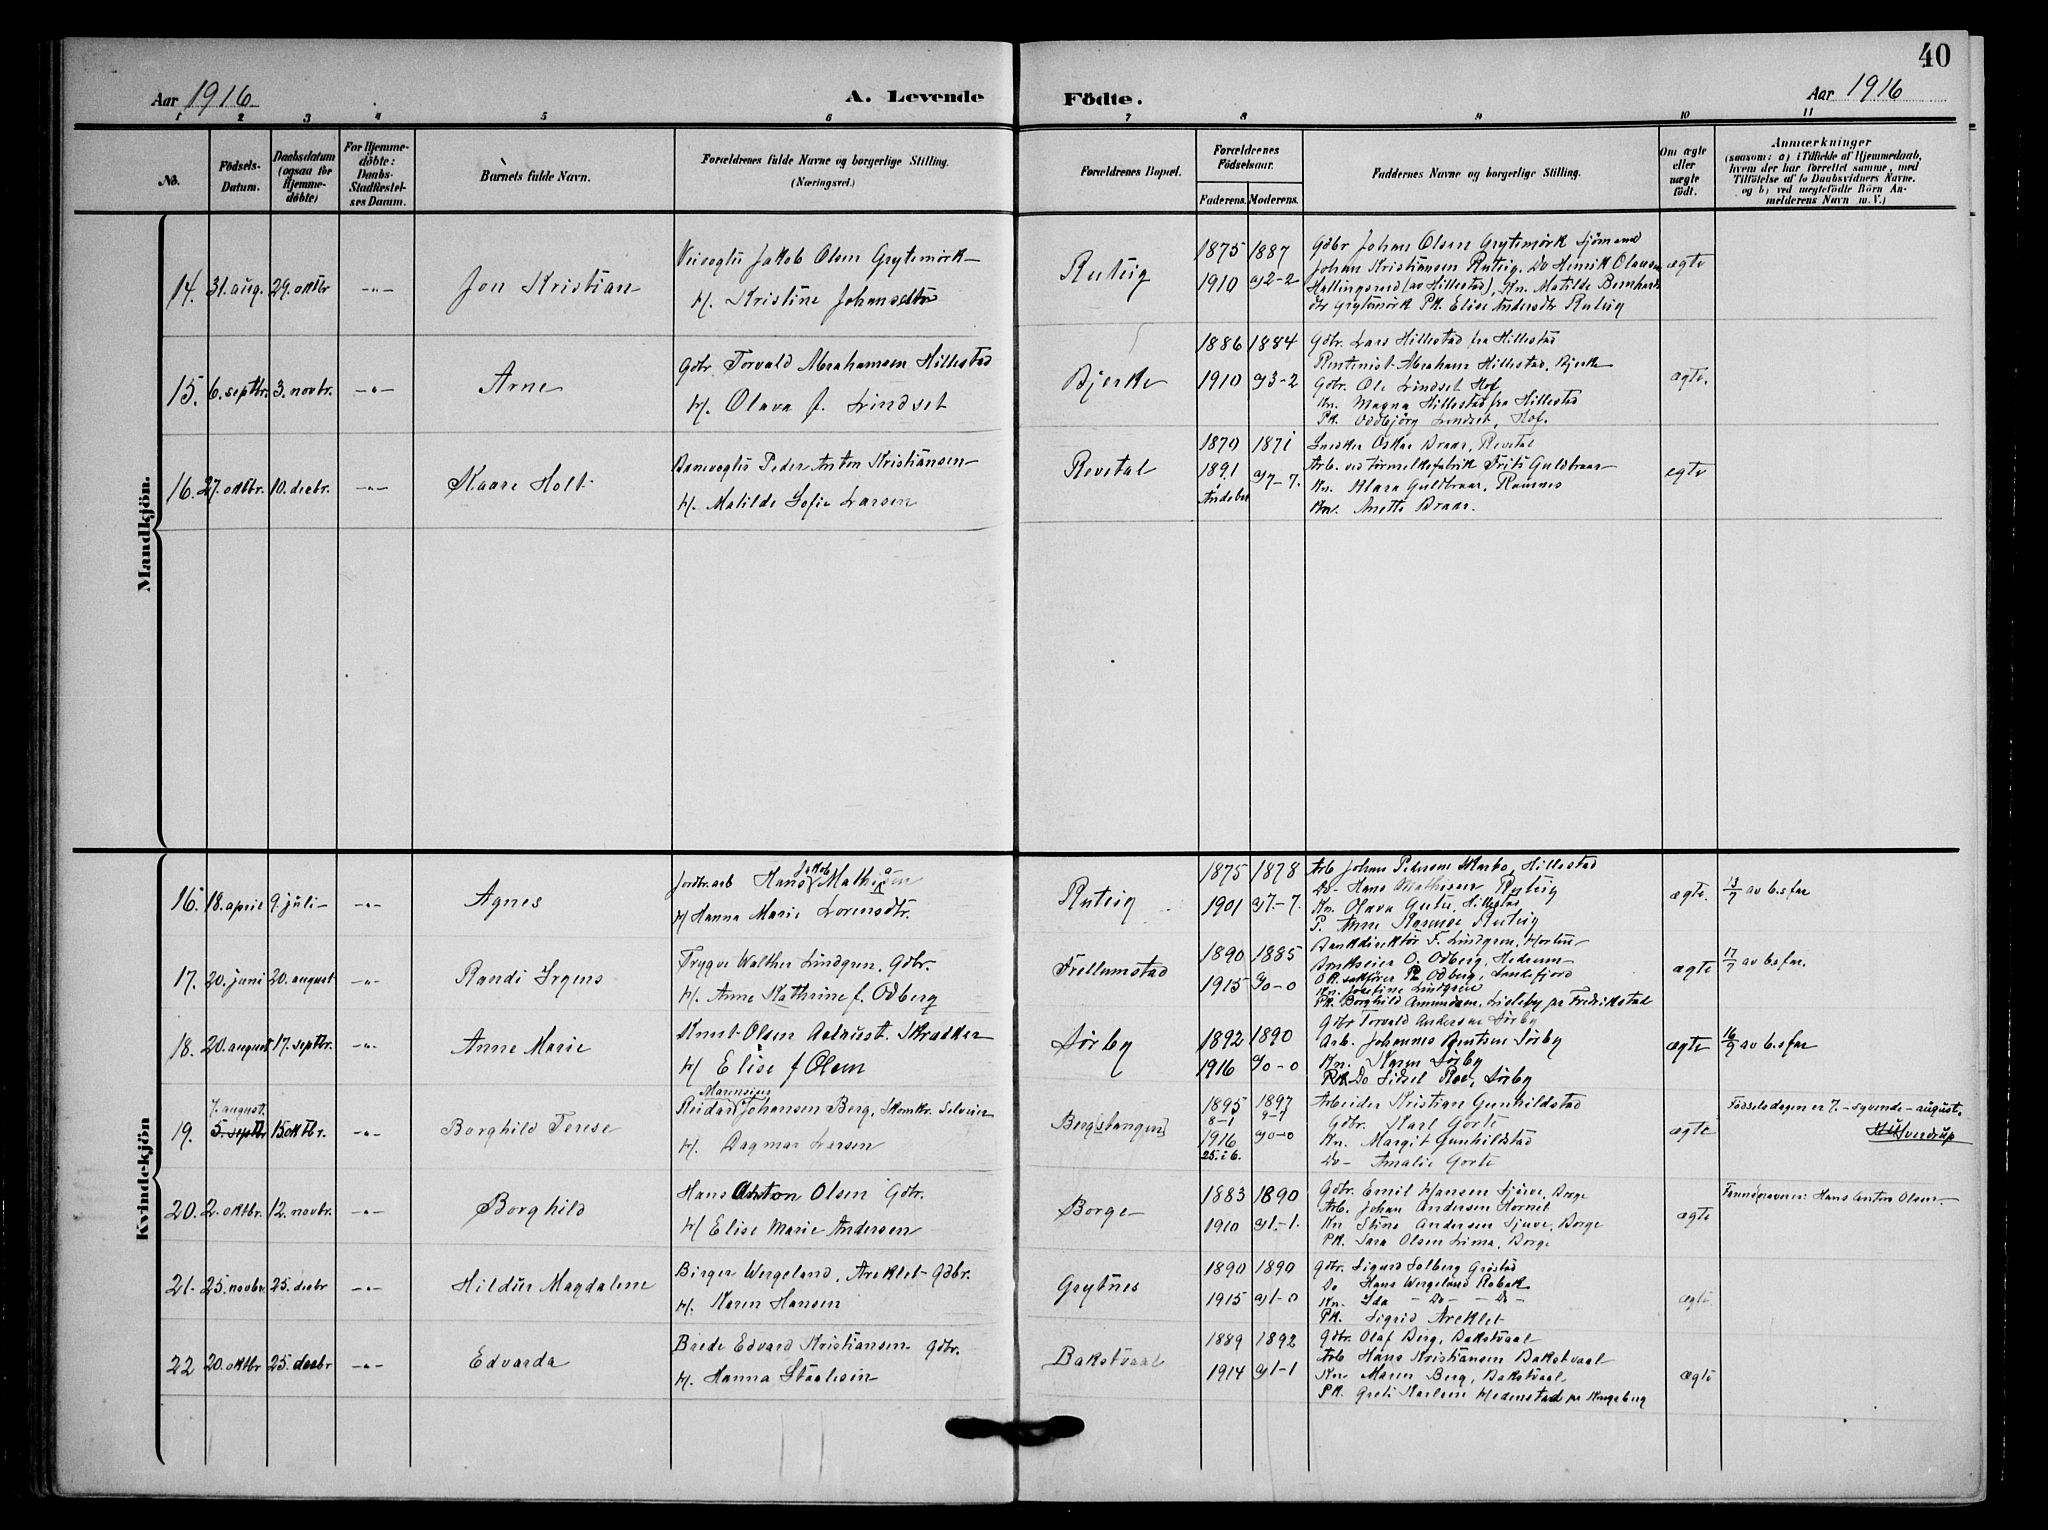 40
Aar 1916
A. Levende
Födte.
Aar 1916
1 2 3 4 5 6 7 8 9 10 11
No.
Födsels-
Datum.
Daabsdatum
(ogsaa for
Hjemme-
döbte)
For Hjemme-
döbte:
Daabs-
Stadfæstel-
ses Datum.
Barnets fulde Navn.
Forældrenes fulde Navne og borgerlige Stilling.
(Næringsvei.)
Forældrenes Bopæl.
Forældrenes
Födselsaar.
Faderens. Moderens.
Faddernes Navne og borgerlige Stilling.
Om ægte
eller
uægte
födt.
Anmærkninger
(saasom: a) i Tilfælde af Hjemmedaab,
hvem der har forrettet samme, med
Tilföielse af to Daabsvidners Navne.
og b) ved uægtefödte Börn An-
melderens Navn m. V.)
Mandkjön.
14. 31. aug. 29. oktbr -"- Jon Kristian
Veivogter Jakob Olsen Grytemörk
H. Kristine Johansdtr
Ruteig
1875 1887
1910 g 2-2
Gdbr Johan Olsen Grytemörk Sjömand
Johan Kristiansen Ruteig. Do Henrik Olausen
Hallingsrud (av Hillestad), Kn. Matilde Bernhards
dtr Grytemörk PK. Elise Andersdtr Ruteig
ægte
15. 6. septbr. 3. novbr. -"- Arne
Gdbr. Torvald Abrahamsen Hillestad
H. Olava f. Lindset
Bjerke
1886 1884
1910 g 3-2
Gdbr. Lars Hillestad fra Hillestad
Rentenist Abraham Hillestad, Bjerke
Gdbr. Ole Lindset Hof,
Kn. Magna Hillestad fra Hillestad
PK. Oddbjörg Lindset, Hof.
ægte.
16. 27. oktbr. 10. decbr. -"- Kaare Holt
Banevogter Peder Anton Kristiansen
H. Matilde Sofie Larsen
Revetal
1870 1871
1891 g 7-7.
i Andebu
Snedker Oskar Braar, Revetal
Arb. ved törmelkefabrik Frits Guldbraar
Kn. Klara Guldbraar, Ramnes
Kn. Anette Braar.
ægte
Kvindekjön
16. 18. april 9. juli -"- Agnes
Jordbr.arb Hans Jakob Mathisen
H Hanna Marie Lorensdtr.
Ruteig
1875 1878
1901 g 7.-7.
Arb Johan Pedersen Skarbo, Hillestad
Do- Hans Mathisen Ruteig
Kn. Olava Gutu, Hillestad
P. Anne Rasmus Ruteig
ægte.
13/7 av b.s far
17. 20. juni 20. august -"- Randi Irgens
Trygve Walther Lindgren. Gdbr.
H. Anne Kathrine f. Odberg
Frellumstad
1890 1885
1915 g 0-0
Bankdirektör F. Lindgren, Horten
Bankkasser O. Odberg, Hedrum
OR. sakförer P. Odberg, Sandefjord
Kn. Josefine Lindgren
PK. Borghild Amundsen, Lisleby pr Fredrikstad
ægte
17/7 av b.s far.
18. 20. august 17. septbr. -"- Anne Marie
Knut Olsen Aalrust. Skrædder
H Elise f Olsen
Sörby
1892 1890
1916 g 0-0
Gdbr Torvald Andersen Sörby
Arb. Johannes Berntsen Sörby
Kn. Karen Sörby
PK. Do Sidsel Roe, Sörby
ægte
16/9 av b.s far
19. 7. august. 5. septbr 15 oktbr. -"- Borghild Terese
Reidar Marensius Johansen Berg, Skomkr. Selveier
H. Dagmar Larsen
Berg[stangen]
1895 1897
8-1 9-7
1916 g 0-0
25. i 6.
Arbeider Kristian Gunhildstad
Gdbr. Karl Gorte
Kn. Margit Gunhildstad
Do- Amalie Gorte
ægte
Födselsdagen er 7. - syvende - august.
Sverdrup
20. 2. oktbr. 12. novbr. -"- Borghild
Hans Anton Olsen Gdbr.
H Elise Marie Andersen
Borge
1883 1890
1910 g 1.-1.
Gdbr. Emil Hansen Sjuve, Borge
Arb. Johan Andersen Hornet
Kn Stina Andersen Sjuve, Borge
PK. Sara Olsen Lima, Borge
ægte
Farens navn: Hans Anton Olsen
21. 25. novbr. 25. decbr -"- Hildur Magdalene
Birger Wergeland, Areklet Gdbr.
H. Karen Hansen
Grytnes
1890 1890
1915 g 1-0
Gdbr. Sigurd Solberg Gröstad
Do Hans Wergeland Rabak
Kn. Ida - Do - - Do -
PK. Sigrid Areklet
ægte
22 20. oktbr 25. decbr -"- Edvarda
Brede Edvard Kristiansen Gdbr.
H. Hanna Staalesin
Bakstvaal
1889 1892
1914 g 1-1
Gdbr. Olaf Berg, Bakstvaal
Arb Hans Kristiansen Bakstvaal
Kn Maren Berg, Bakstvaal
PK. Greti Karlsen Hedenstad pr Kongsberg
ægte